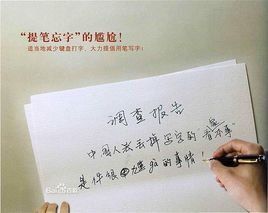 “提笔忘字”的尴尬！
适当地减少键盘打字，大力提倡用笔写字！
调查报告
中国人丢掉写字的“看家本事”
是件很尴尬的事情！
Baidu百科